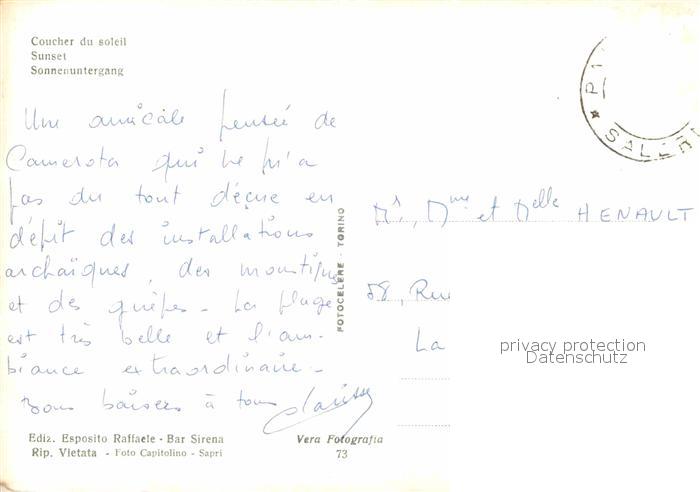 Coucher du soleil
Sunset
Sonnenuntergang
Une amicale pensée de
Camerota qui ne m'a
pas du tout déçue en
dépit des installations
archaïques, des moustiques
et des guêpes - La plage
est très belle et l'am-
biance extraordinaire -
Bons baisers à tous
Clarisse
Ediz. Esposito Raffaele - Bar Sirena
Rip. Vietata - Foto Capitolino - Sapri
Vera Fotografia
73
FOTOCELERE - TORINO
SALER
Mr, Mme et Melle HENAULT
58, Rue
La
privacy protection
Datenschutz